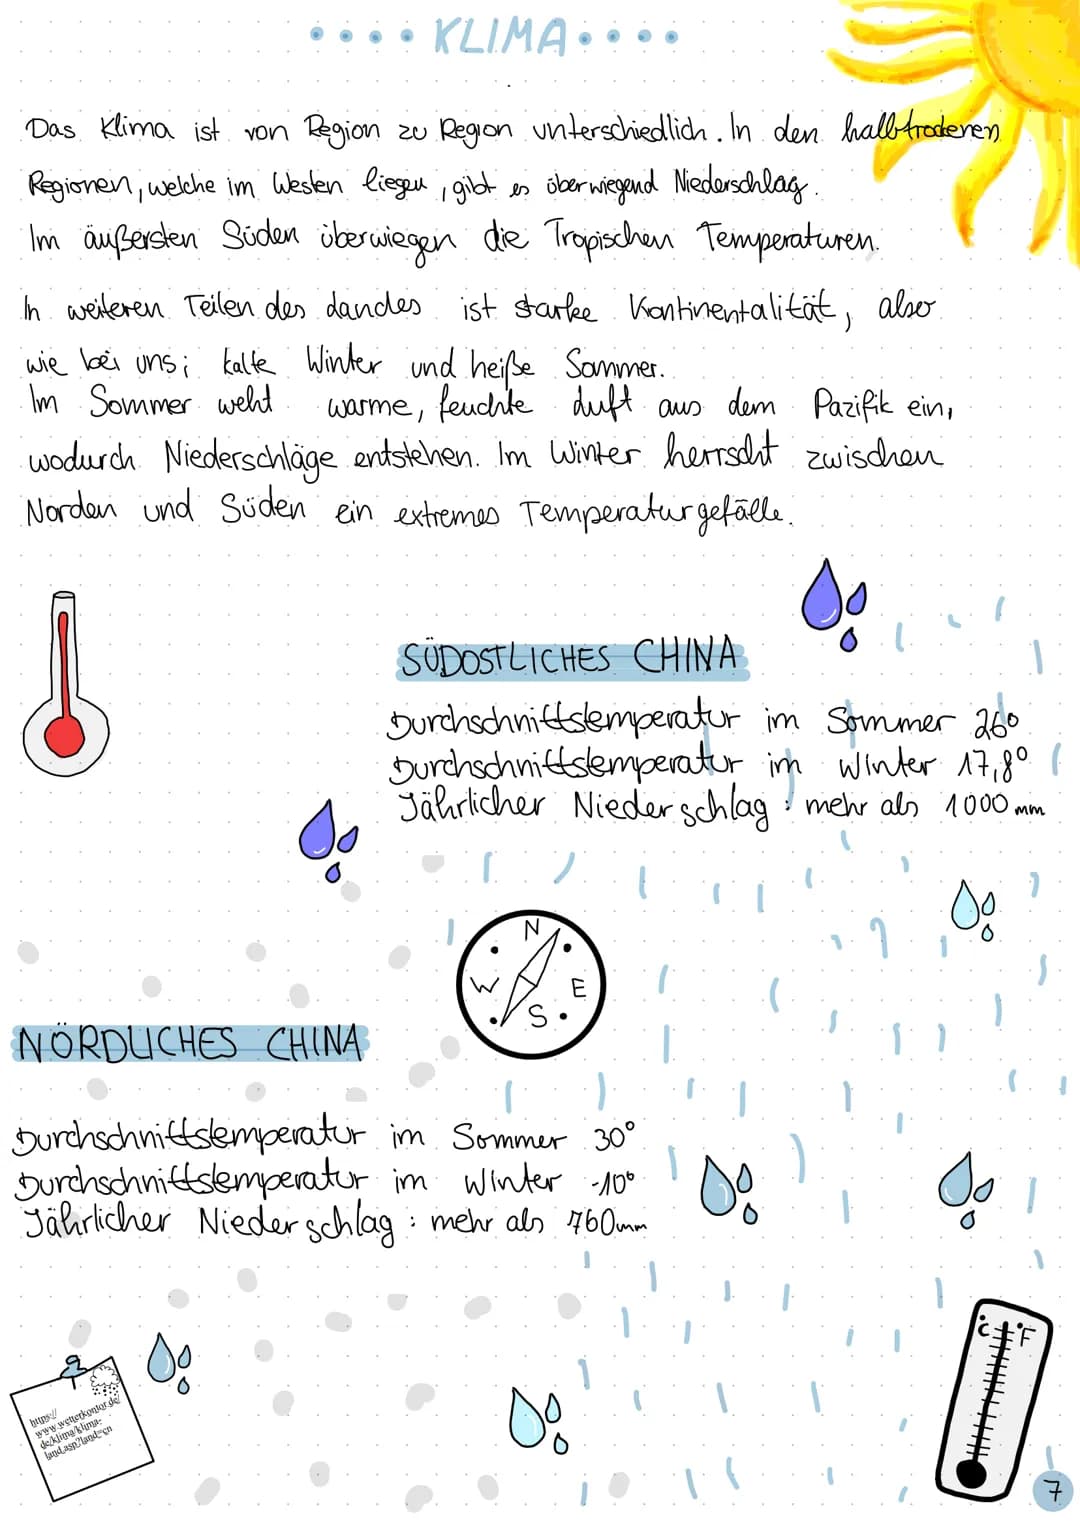 KLIMA
Das Klima ist von Region zu Region unterschiedlich. In den halbtrockenen
Regionen, welche im Westen liegen, gibt es überwiegend Niederschlag.
Im äußersten Süden überwiegen die Tropischen Temperaturen.
In weiteren Teilen des Landes ist starke Kontinentalität, also
wie bei uns; kalte Winter und heiße Sommer.
Im Sommer weht warme, feuchte Luft aus dem Pazifik ein,
wodurch Niederschläge entstehen. Im Winter herrscht zwischen
Norden und Süden ein extremes Temperaturgefälle.
SÜDOSTLICHES CHINA
Durchschnittstemperatur im Sommer 26°
Durchschnittstemperatur im Winter 17,8°
Jährlicher Niederschlag: mehr als 1000 mm
N
W
E
S
NÖRDLICHES CHINA
Durchschnittstemperatur im Sommer 30°
Durchschnittstemperatur im Winter -10°
Jährlicher Niederschlag: mehr als 760mm
https://
www.wetterkontor.de/
de/klima/klima-
land.asp?land=cn
°C °F
7